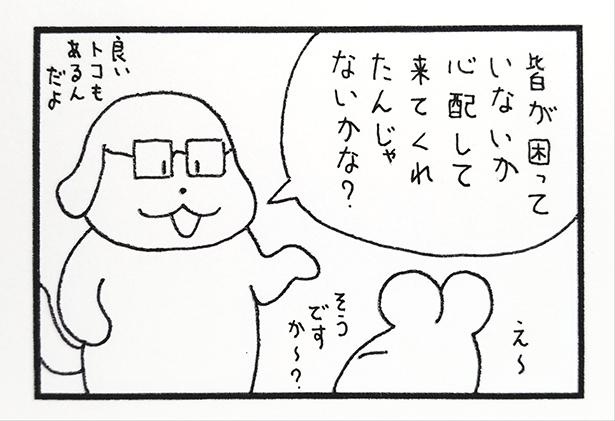 皆が困って
いないか
心配して
来てくれ
たんじゃ
ないかな?
良い
トコも
あるん
だよ
え〜
そう
です
か〜?